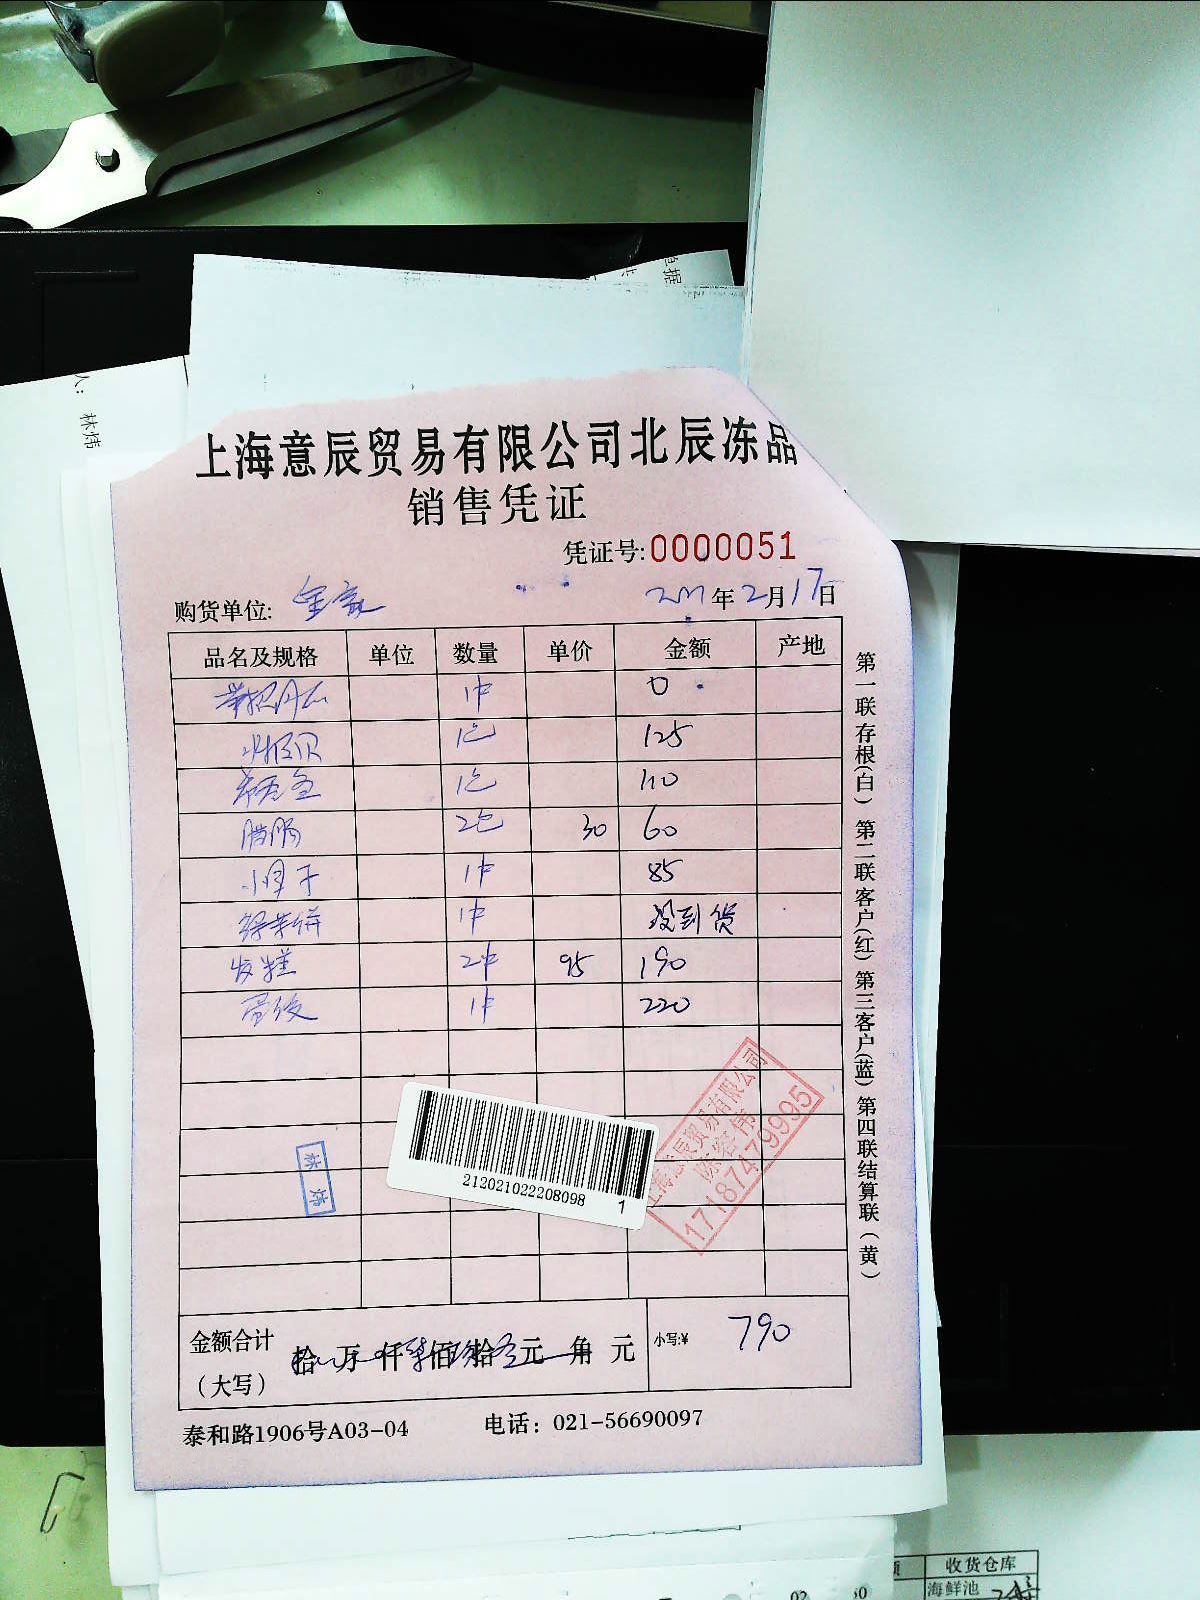 单据
人：
林炜
上海意辰贸易有限公司北辰冻品
销售凭证
凭证号:0000051
购货单位: 年2月17日
品名及规格 单位 数量 单价 金额 产地
1件 0
1包 125
1包 110
腊肠 2包 30 60
1件 85
绿茶饼 1件 没到货
发糕 2件 95 190
1件 220
第一联存根(白) 第二联客户(红) 第三客户(蓝) 第四联结算联(黄)
上海意辰贸易有限公司
17187479995
林炜
212021022208098 1
金额合计
(大写) 拾 万 仟 佰 拾 元 角 元 小写:¥ 790
泰和路1906号A03-04 电话: 021-56690097
收货仓库
海鲜池